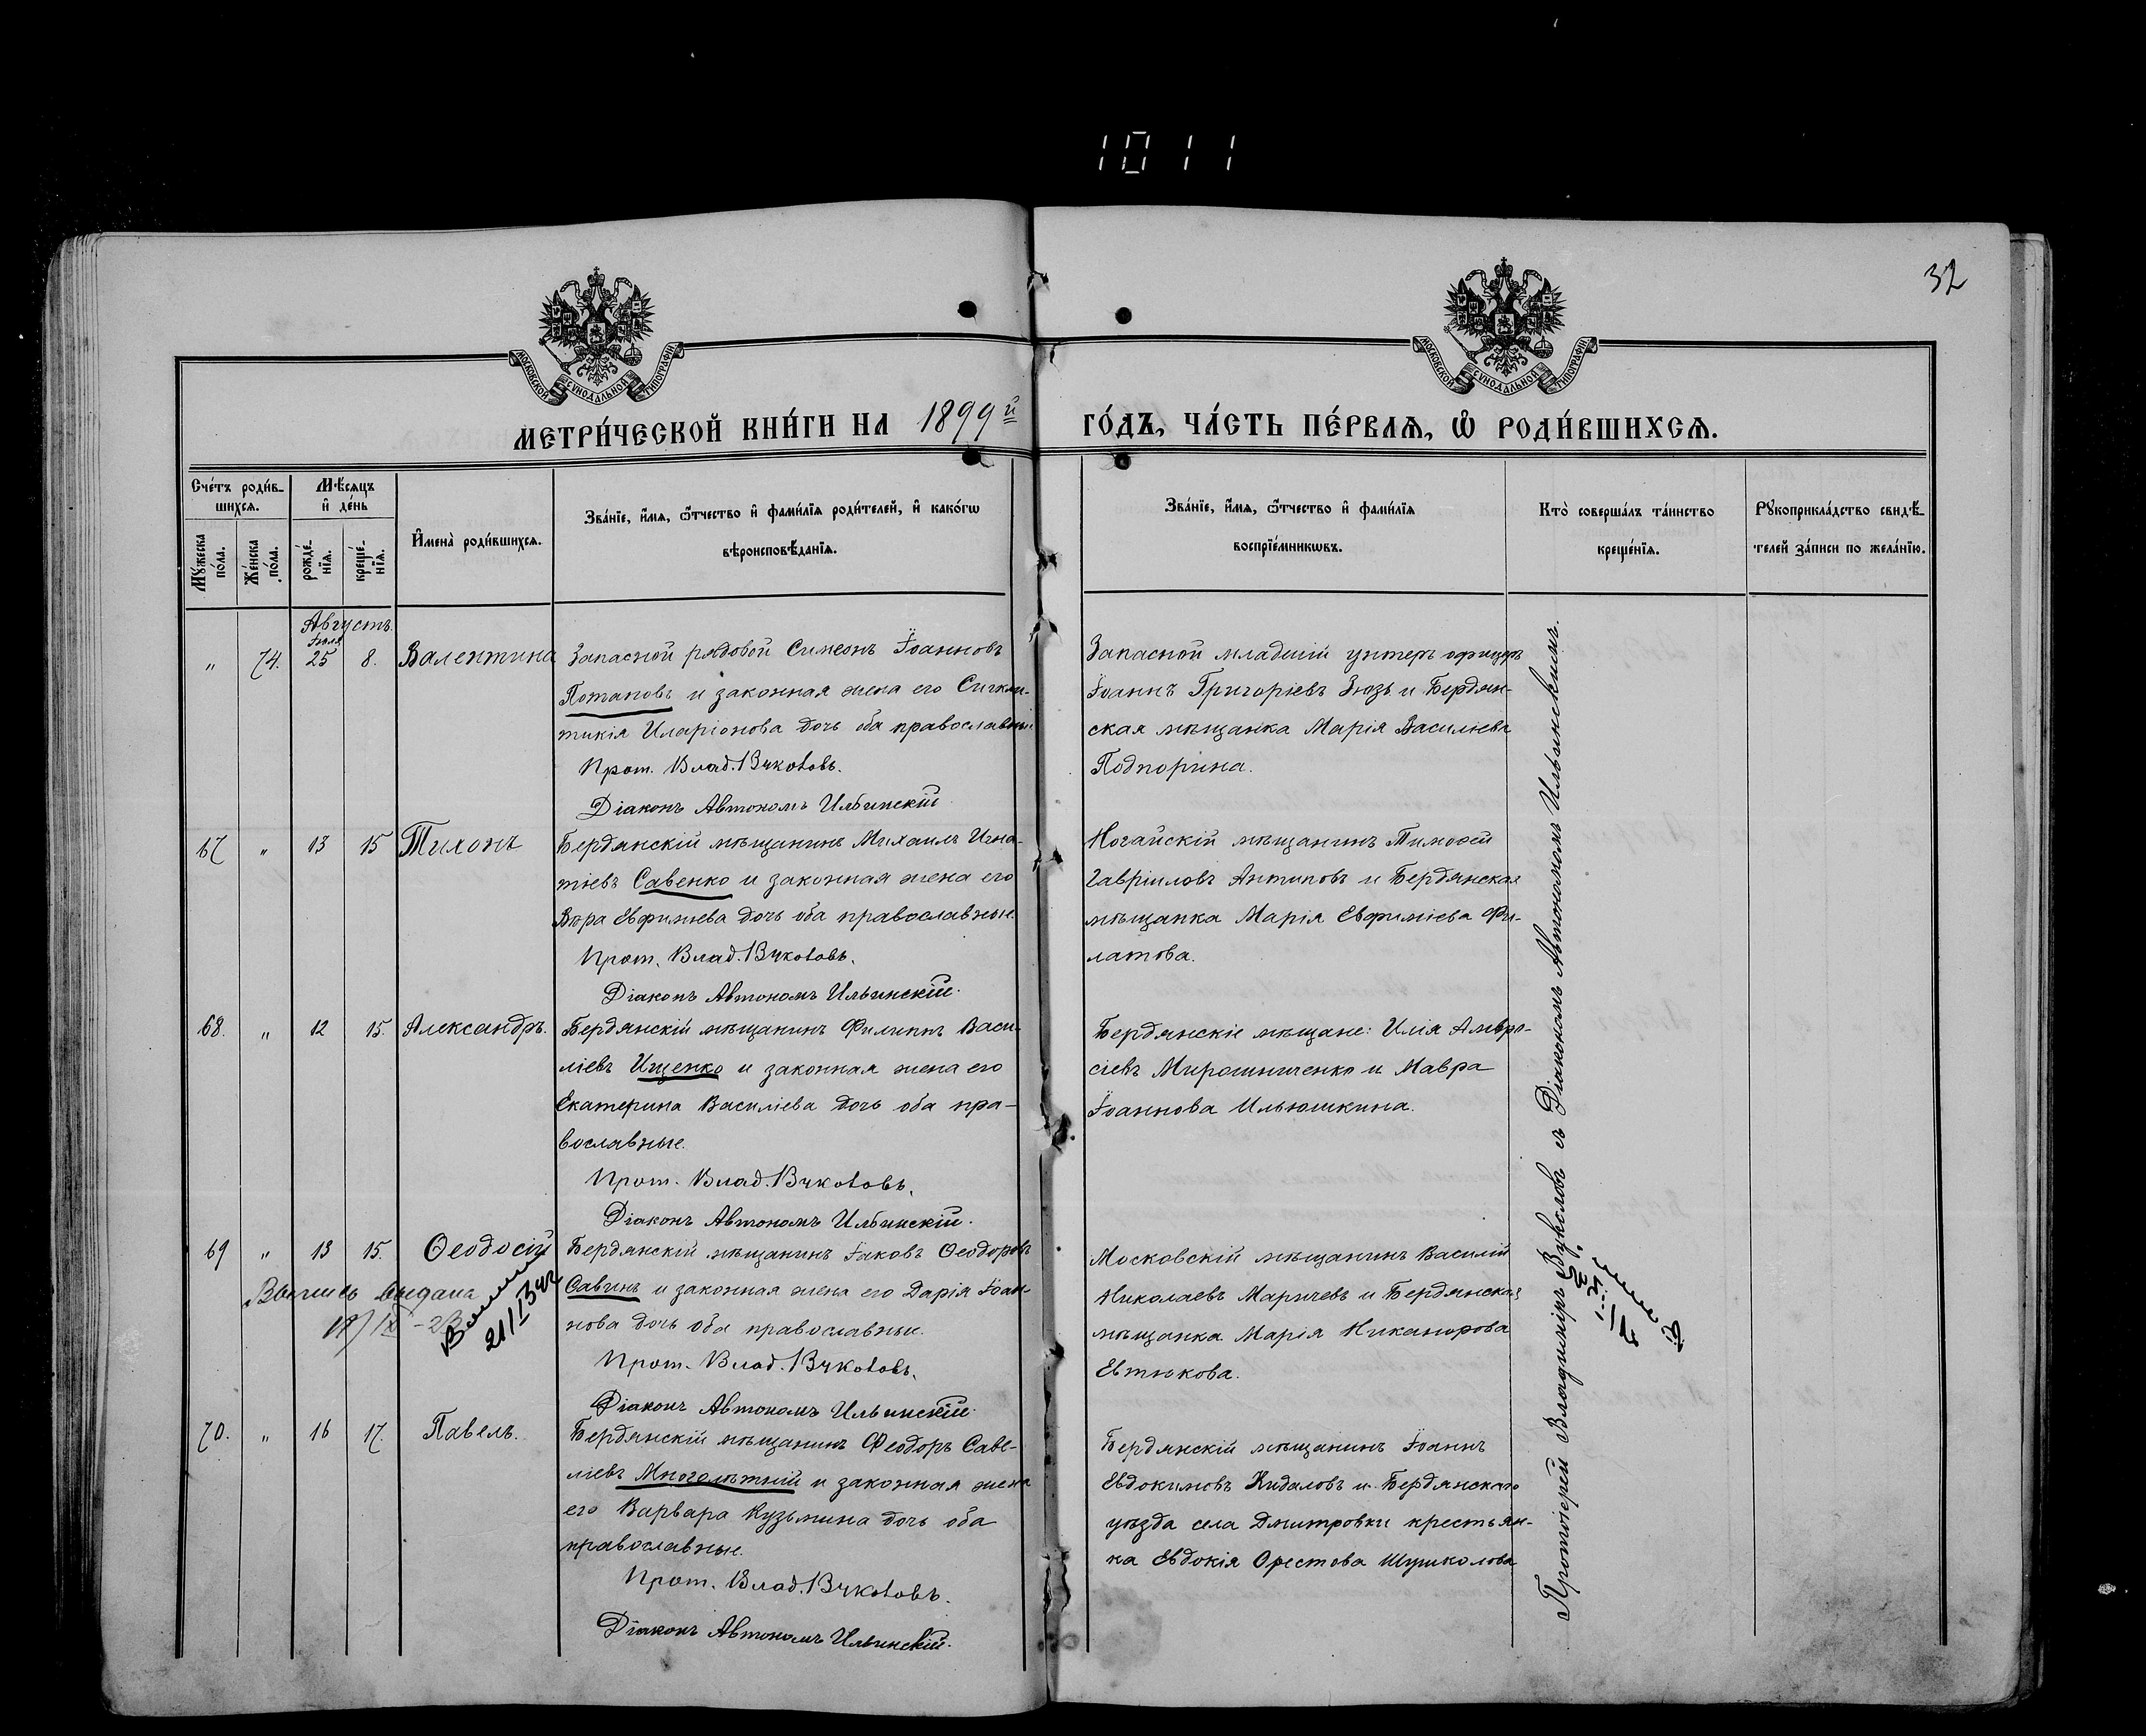 1011
32
МОСКОВСКОЙ СѴНОДАЛЬНОЙ ТИПОГРАФІИ
МОСКОВСКОЙ СѴНОДАЛЬНОЙ ТИПОГРАФІИ
МЕТРИ́ЧЕСКОЙ КНИ́ГИ НА 1899й ГО́ДЪ, ЧА́СТЬ ПЕ́РВАѦ, Ѡ҆ РОДИ́ВШИХСѦ.
Сче́тъ роди́в-
шихсѧ.
Мꙋ́жеска по́ла.
Же́нска по́ла.
Мѣ́сѧцъ
и҆ де́нь
рожде́-
нїѧ.
креще́-
нїѧ.
И҆мена̀ роди́вшихсѧ.
Зва́нїе, и҆́мѧ, ѻ҆́тчество и҆ фами́лїѧ роди́телей, и҆ како́гѡ
вѣроисповѣ́данїѧ.
Зва́нїе, и҆́мѧ, ѻ҆́тчество и҆ фами́лїѧ
воспрїе́мникѡвъ.
Кто̀ соверша́лъ та́инство
креще́нїѧ.
Рꙋкоприкла́дство свидѣ́-
телей за́писи по жела́нїю.
Августъ.
Іюля
" 74. 25 8. Валентина
Запасной рядовой Симеонъ Іоанновъ
Потаповъ и законная жена его
Иларіонова дочь оба православные
Прот. Влад. Вуколовъ.
Діаконъ Автономъ Ильинскій.
Запасной младшій унтеръ офицеръ
Іоаннъ Григоріевъ Зюзь и Бердян-
ская мѣщанка Марія Василіева
Подпорина.
67 " 13 15 Тихонъ
Бердянскій мѣщанинъ Михаилъ Игна-
тіевъ Савенко и законная жена его
Вѣра Евфиміева дочь оба православные.
Прот. Влад. Вуколовъ.
Діаконъ Автономъ Ильинскій.
Ногайскій мѣщанинъ Тимоѳей
Гавріиловъ Антиповъ и Бердянская
мѣщанка Марія Евфиміева Фи-
латова.
68. " 12 15. Александръ.
Бердянскій мѣщанинъ Филиппъ Васи-
ліевъ Ищенко и законная жена его
Екатерина Василіева дочь оба пра-
вославные.
Прот. Влад. Вуколовъ.
Діаконъ Автономъ Ильинскій.
Бердянскіе мѣщане: Илія Амвро-
сіевъ Мирошниченко и Мавра
Іоаннова Ильюшкина.
69 " 13 15. Ѳеодосій
выдана
Бердянскій мѣщанинъ Іаковъ Ѳеодоровъ
Савинъ и законная жена его Дарія Іоан-
нова дочь оба православные.
Прот. Влад. Вуколовъ.
Діаконъ Автономъ Ильинскій.
Московскій мѣщанинъ Василій
Николаевъ Маричевъ и Бердянская
мѣщанка Марія Никанорова
Евтюкова.
70. " 16 17. Павелъ.
Бердянскій мѣщанинъ Ѳеодоръ Саве-
ліевъ Многолѣтній и законная жена
его Варвара Кузьмина дочь оба
православные.
Прот. Влад. Вуколовъ.
Діаконъ Автономъ Ильинскій.
Бердянскій мѣщанинъ Іоаннъ
Евдокимовъ Кидаловъ и Бердянскаго
уѣзда села Дмитровки крестьян-
ка Евдокія Орестова Шушколова
Протоіерей Владиміръ Вуколовъ съ Діакономъ Автономомъ Ильинскимъ.